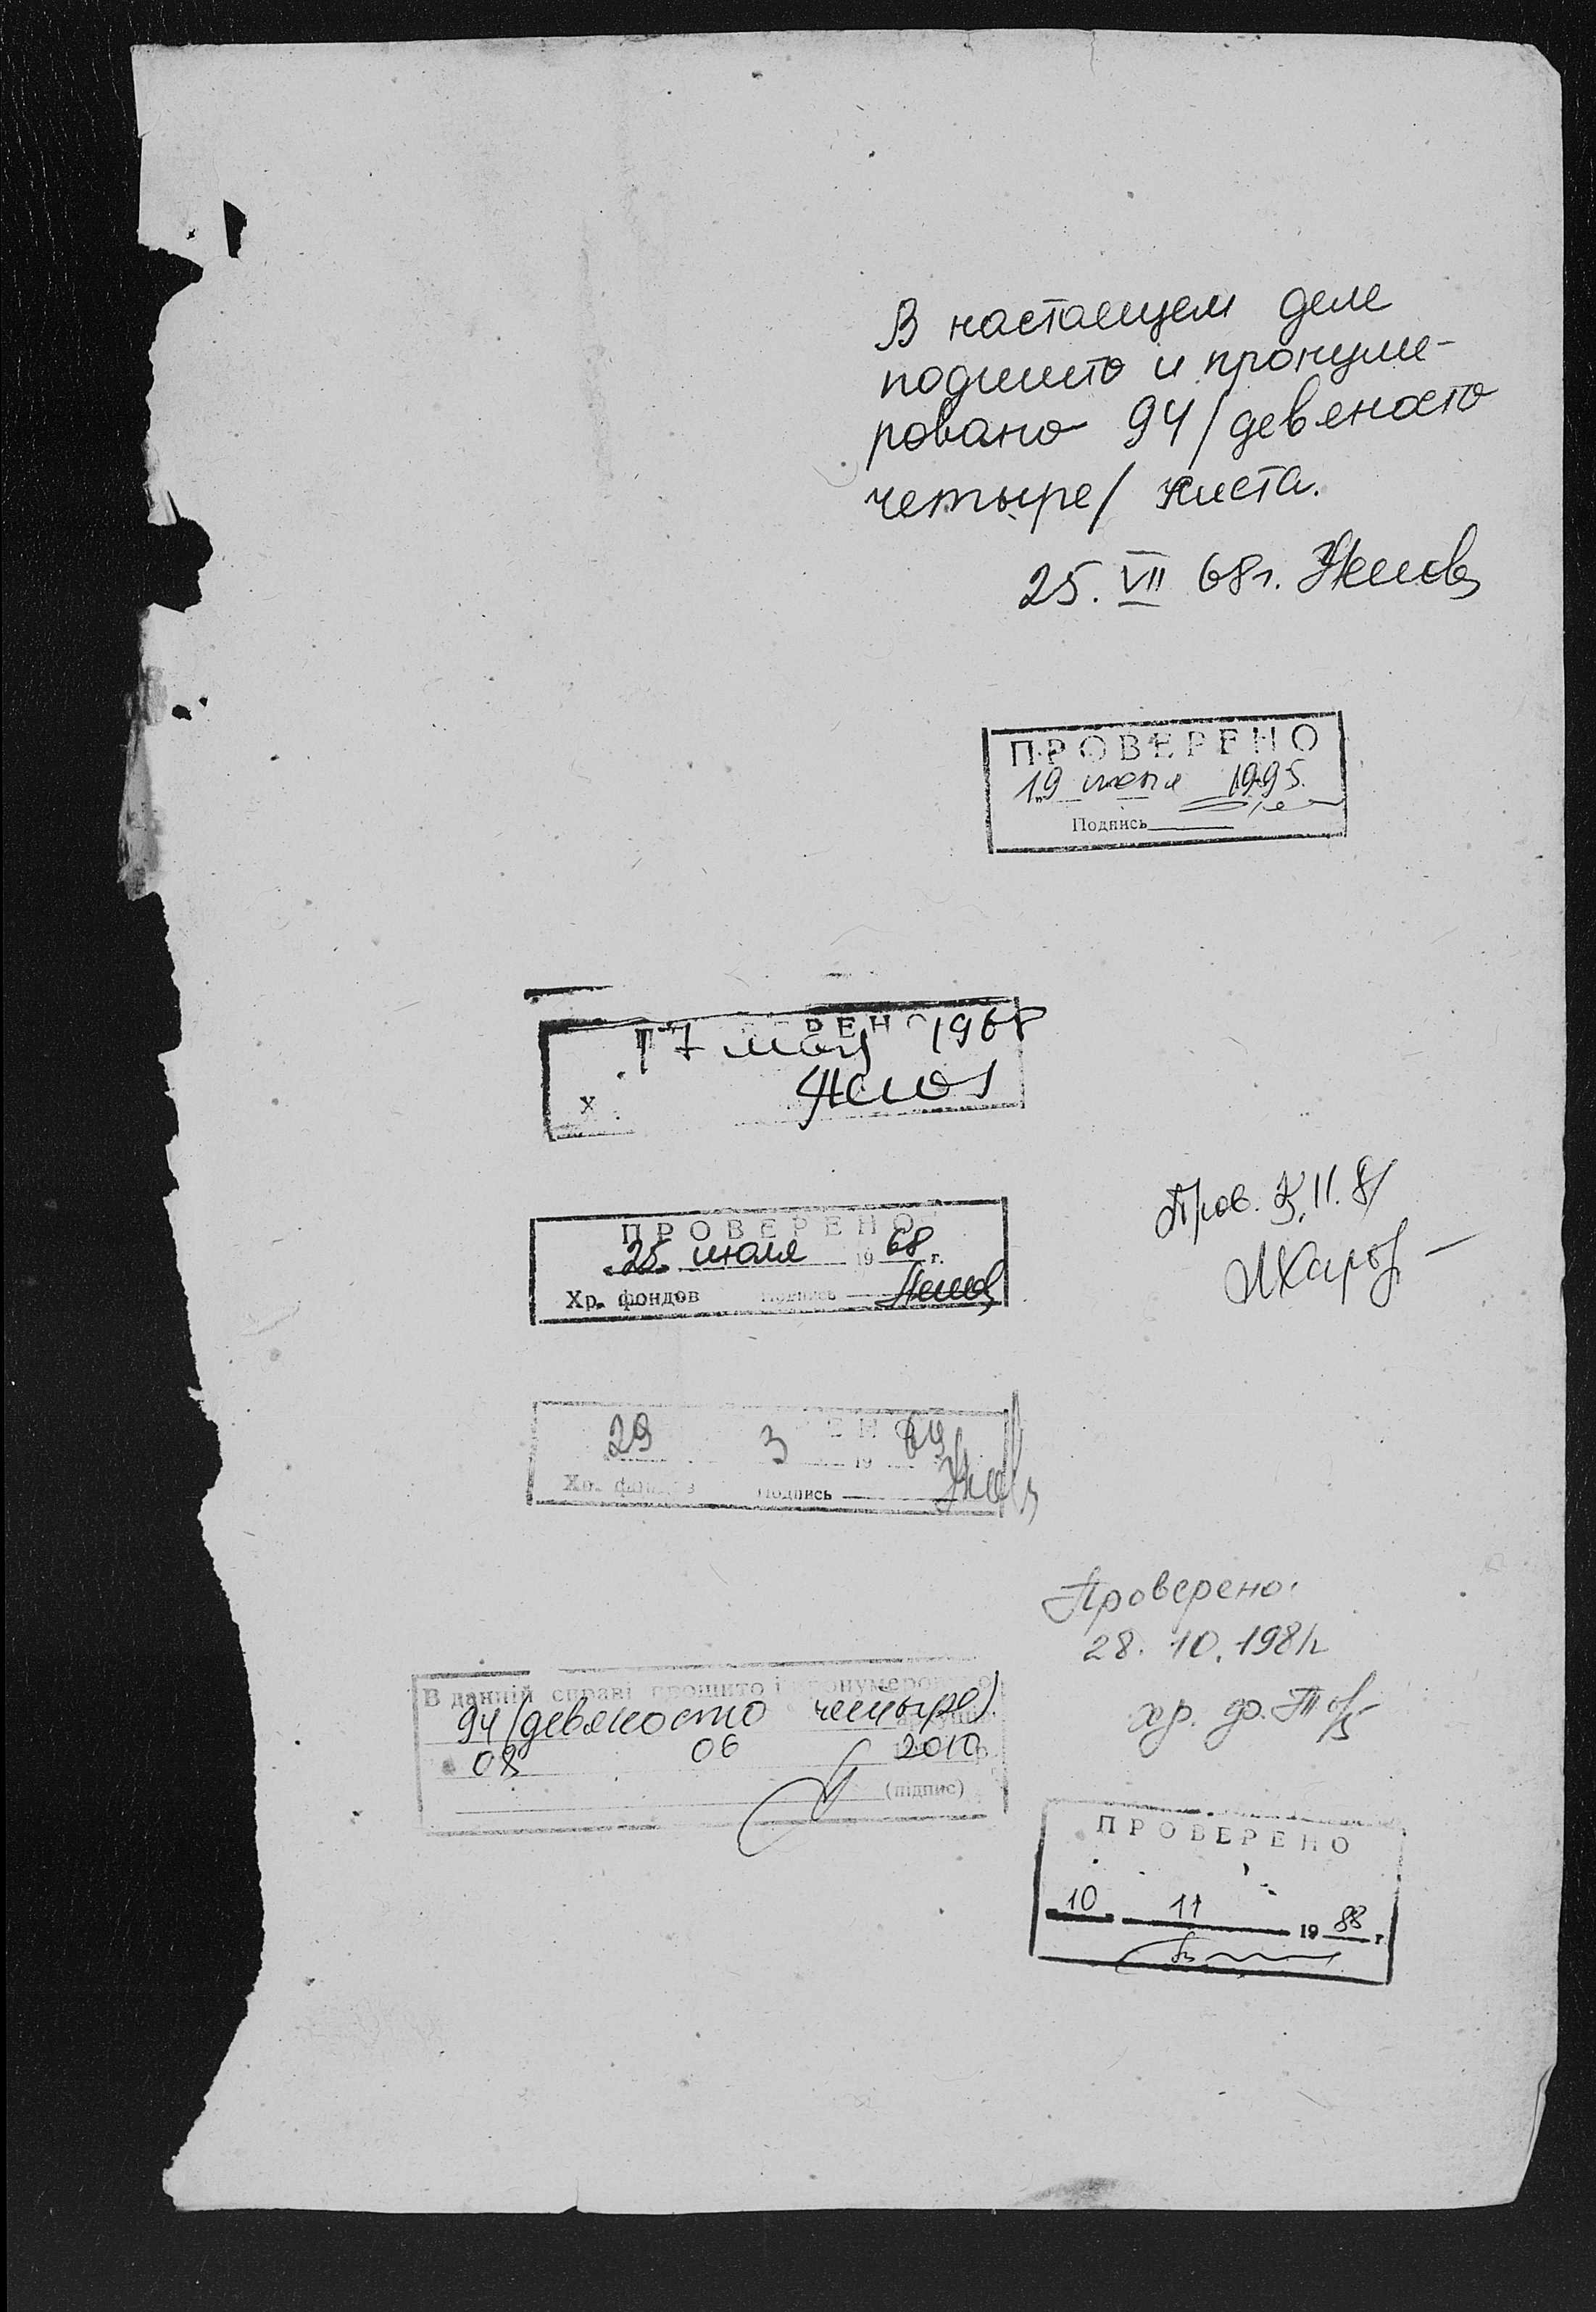 В настоещем деле
подшито и пронуме-
ровано 94/девяносто
четыре/ листа.
25. VII 68г.
ПРОВЕРЕНО
19 июня 1995.
Подпись
17 мая 1968
Х
ПРОВЕРЕНО
25 июля 1968 г.
Хр. фондов подпись
Пров. 11.81
29 3 19
Хр. фондов подпись
Проверено:
28. 10. 1981г.
хр. ф.
В данній справі прошито і пронумеровано
94/девяносто четыре/
08 06 2010 р.
(підпис)
ПРОВЕРЕНО
10 11 1988 г.